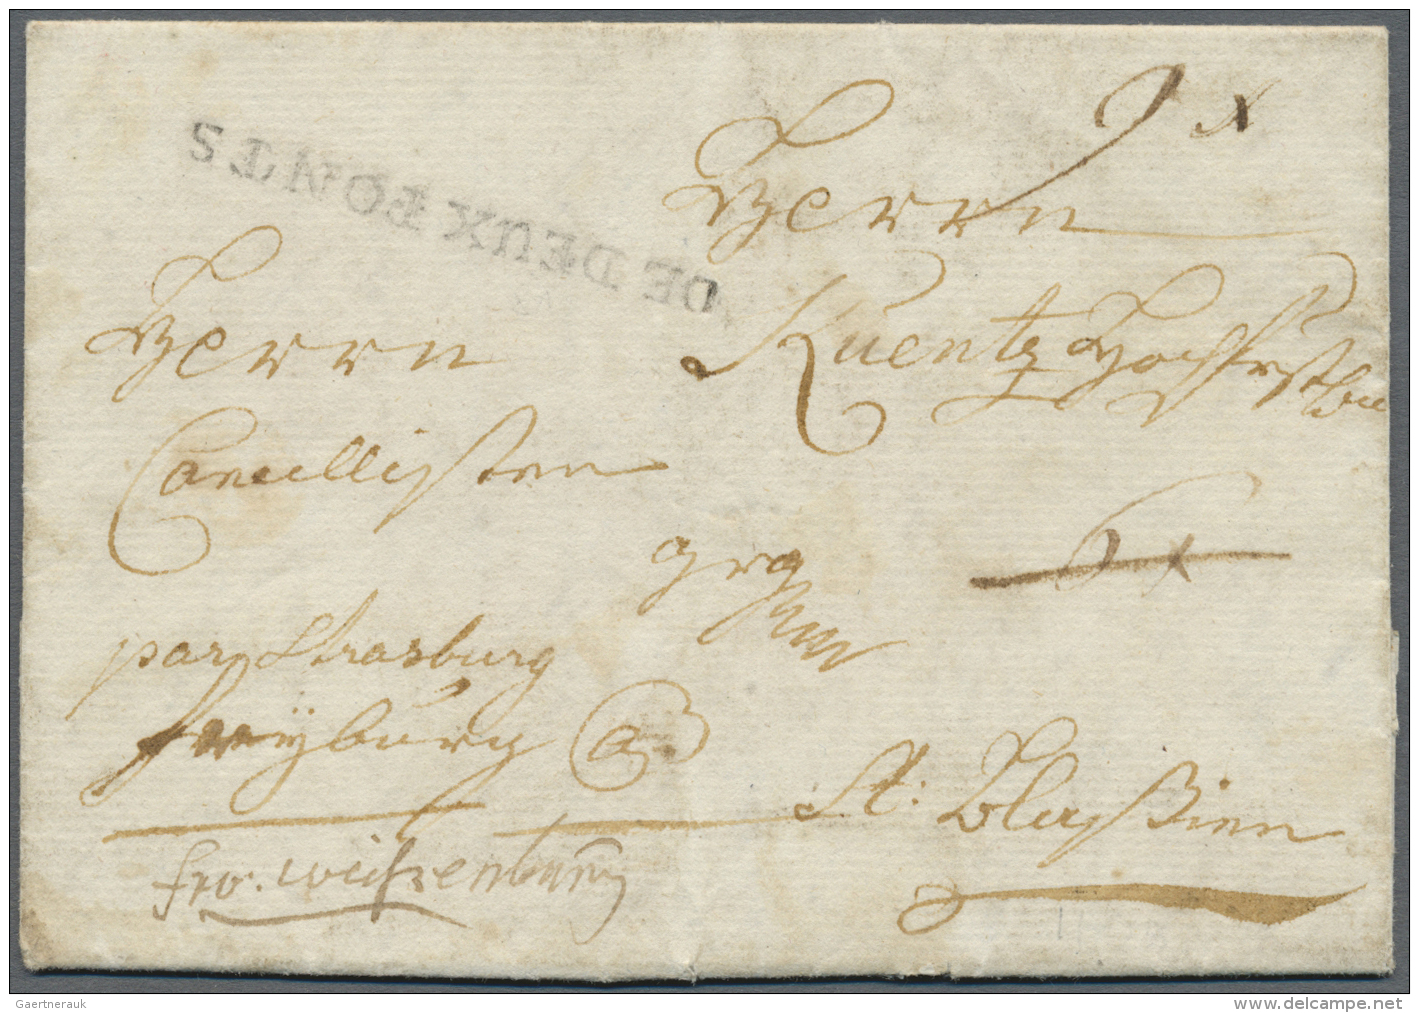 9 x
DE DEUX PONTS
Herrn
Herrn
Kuentz Hochfrstbn
Cancellisten
6 x
par Strasburg
freÿburg
St: Blaßien
fro. weissenburg
Gaertnerauk
www.delcampe.net